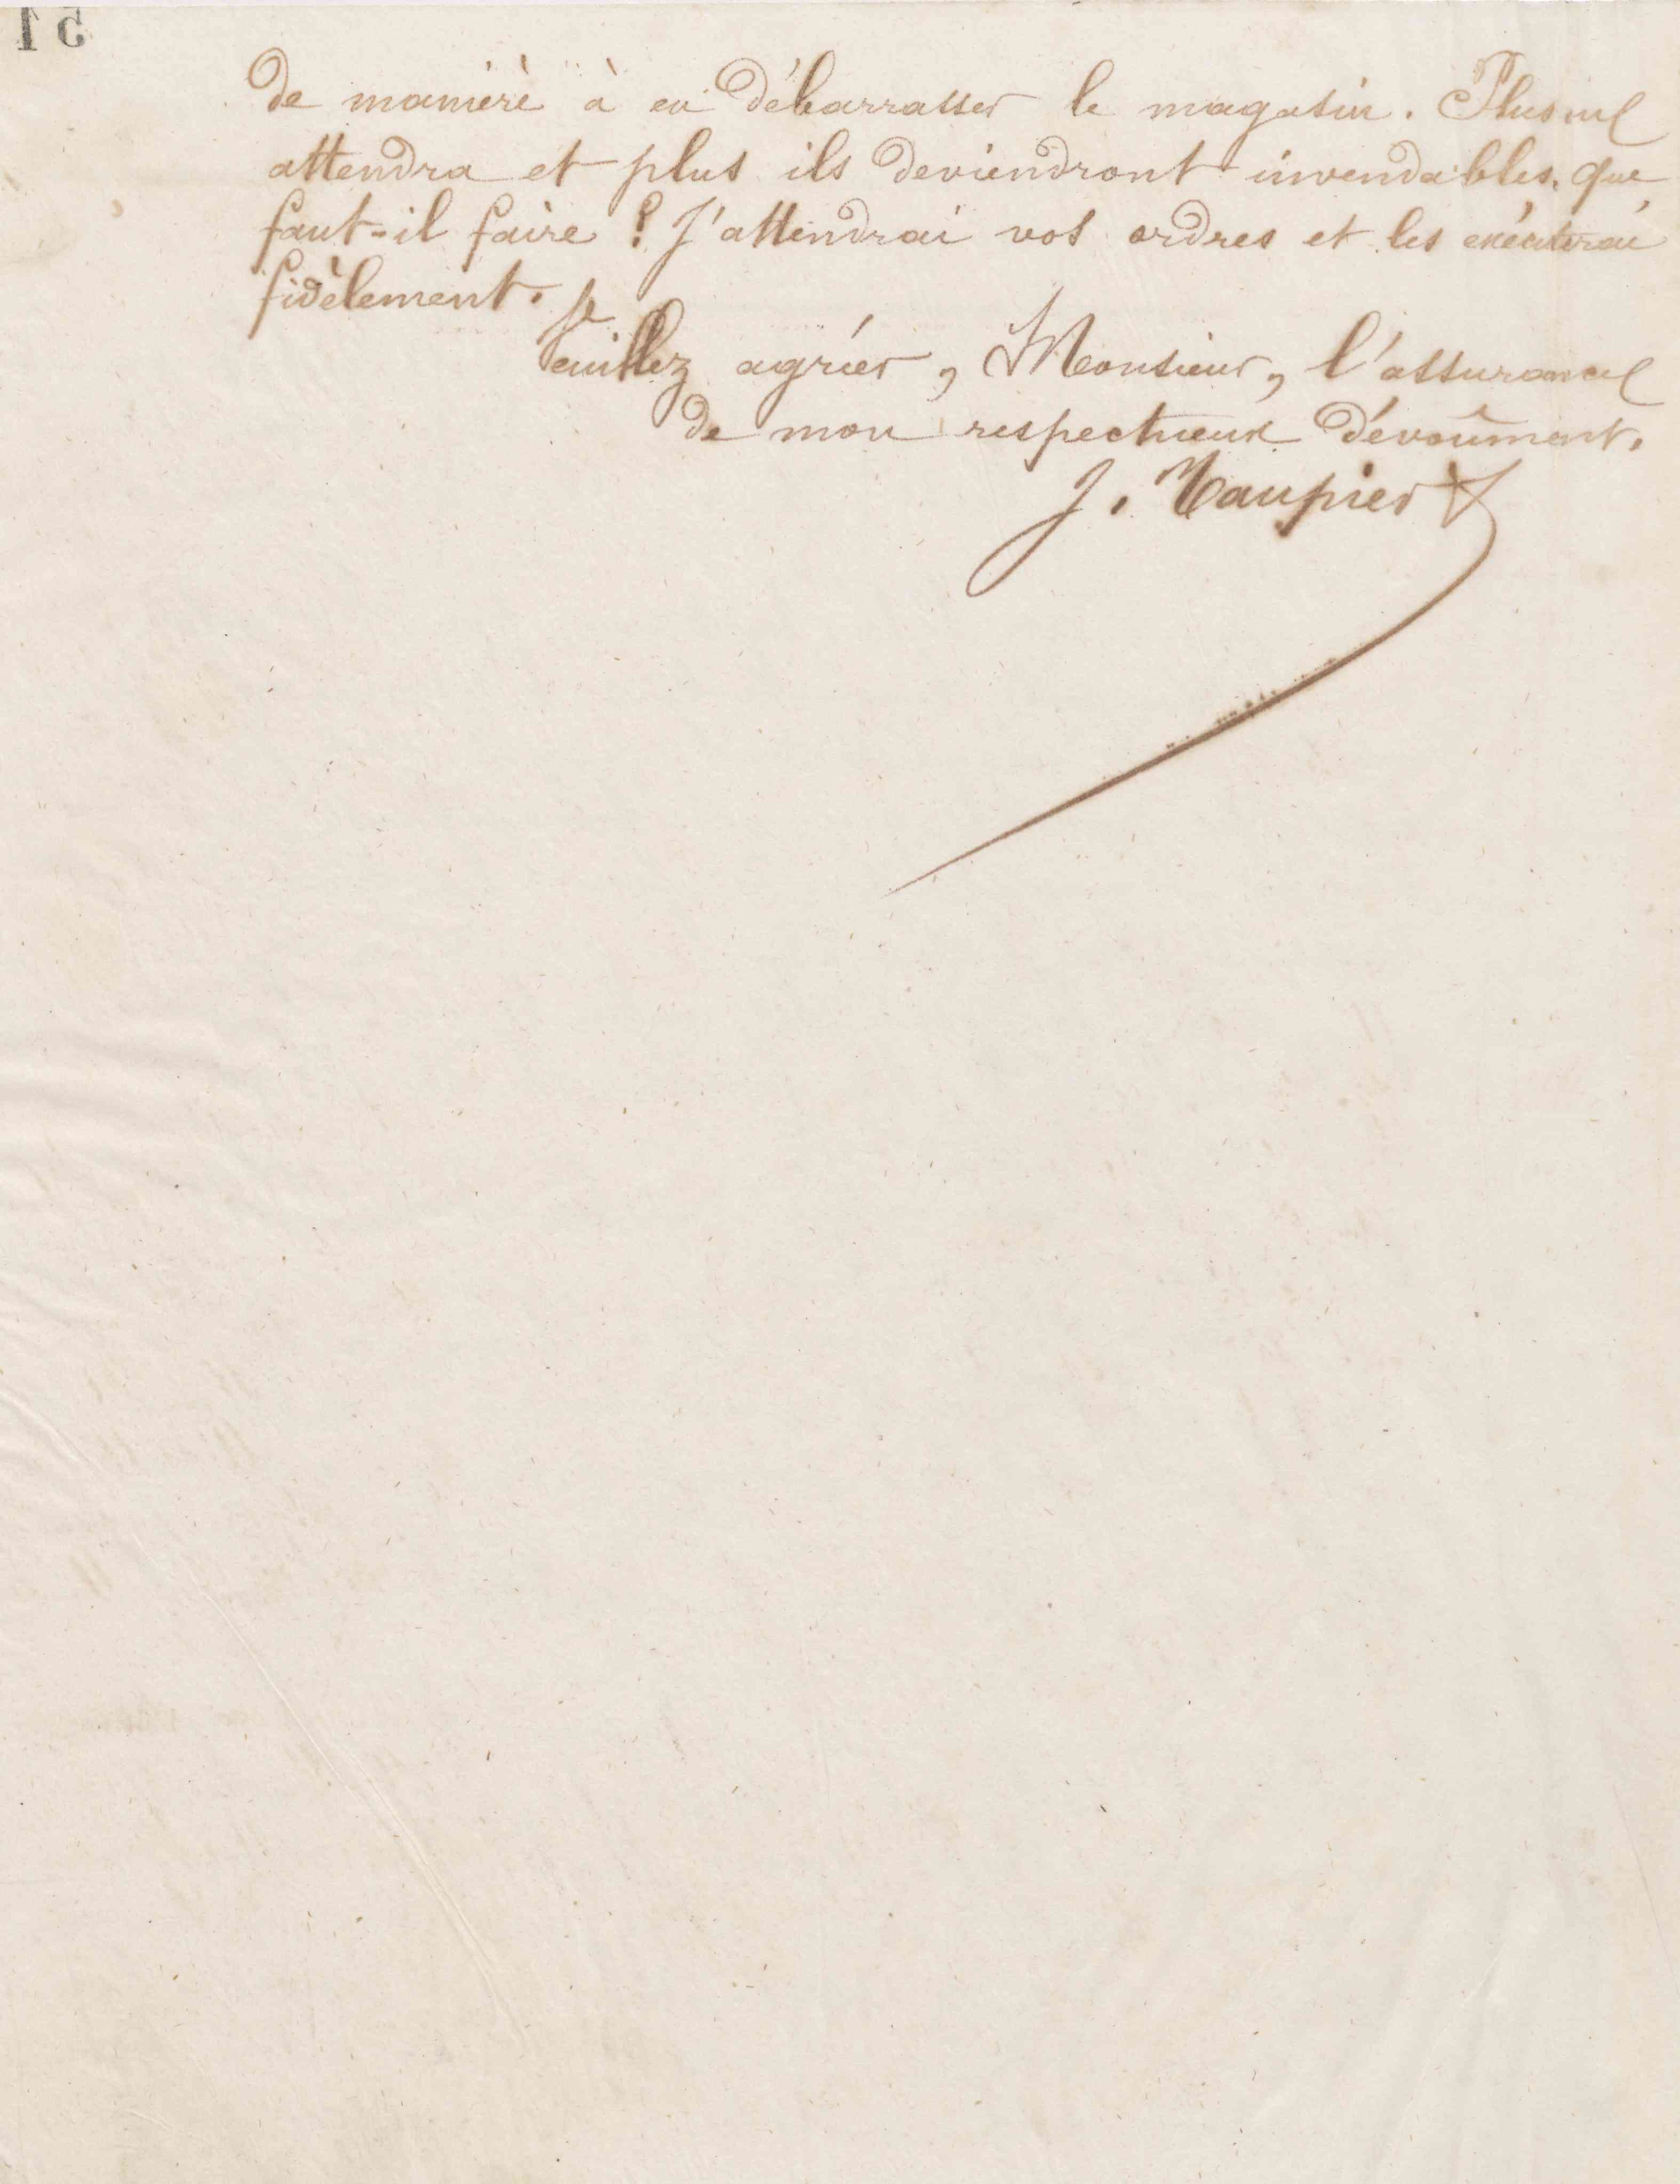 de manière à en débarrasser le magasin. Plus on
attendra et plus ils deviendront invendables. que
faut-il faire ? J'attendrai vos ordres et les exécuterai
fidèlement.
Veuillez agréer, Monsieur, l'assurance
de mon respectueux dévoûment.
J. Taupier